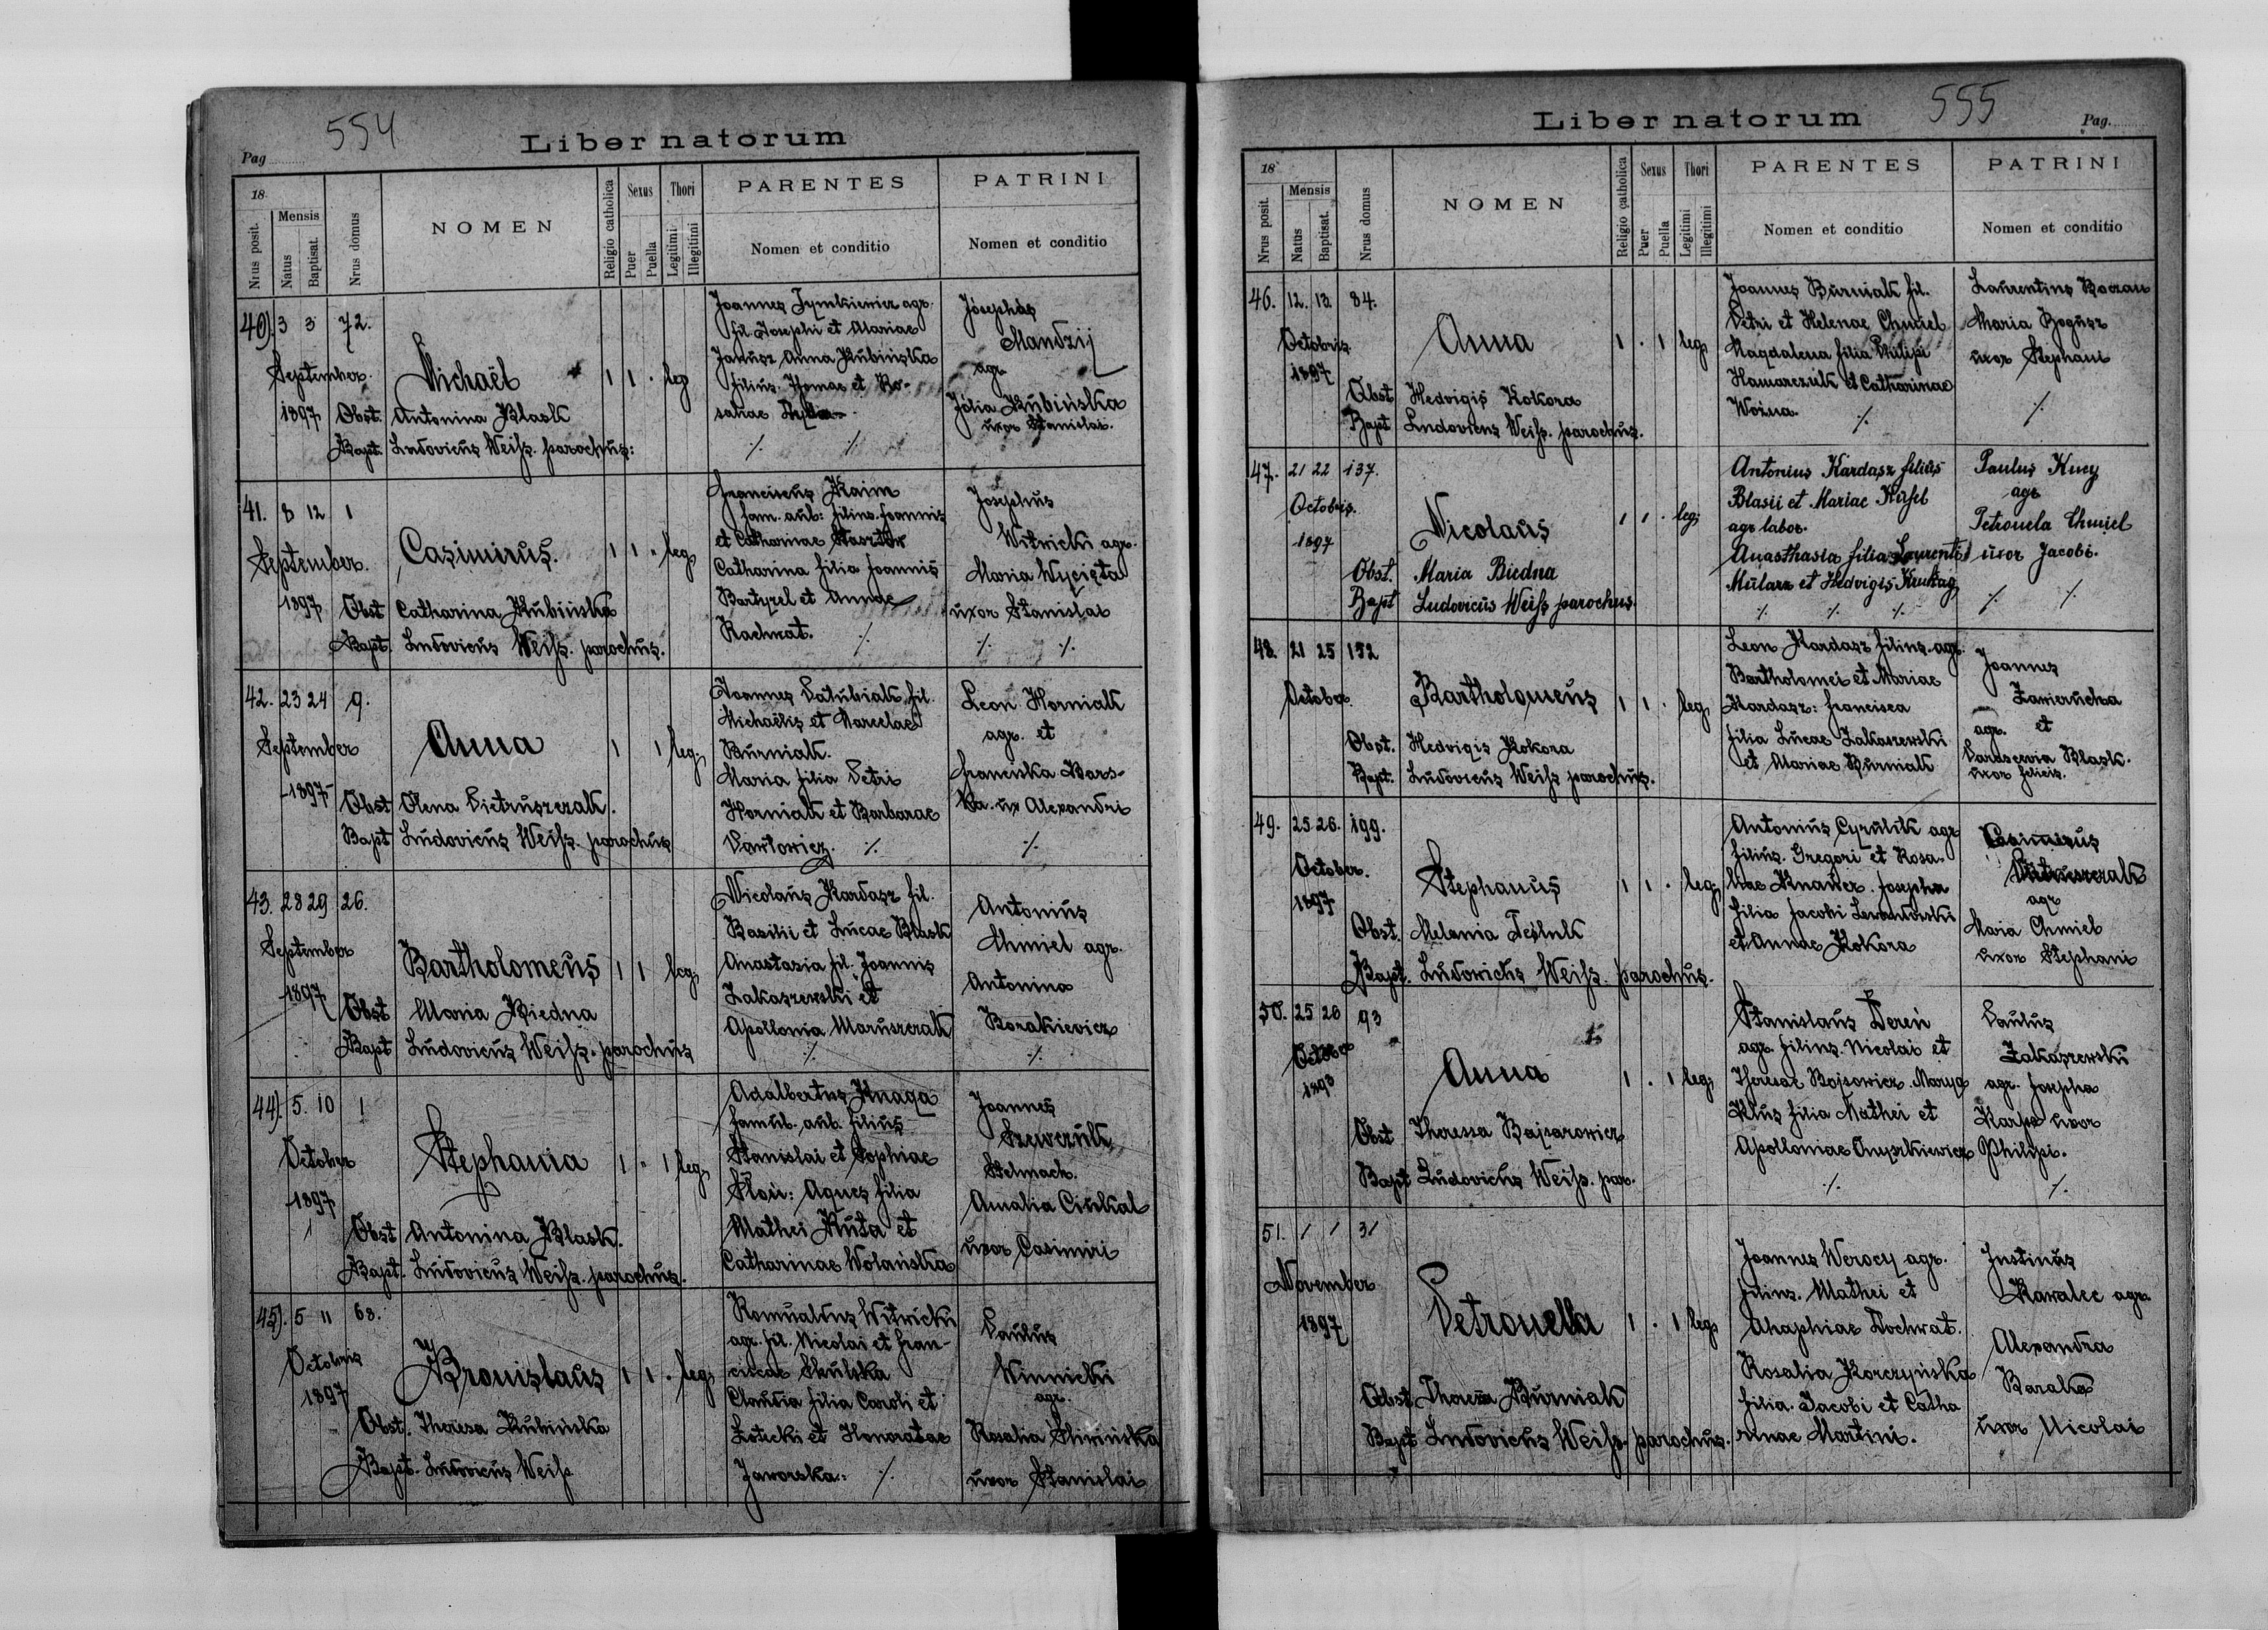 554
Liber natorum
Pag
18
Nrus posit.
Mensis
Natus
Baptisat.
Nrus domus
NOMEN
Religio catholica
Sexus
Puer
Puella
Thori
Legitimi
Illegitimi
PARENTES
Nomen et conditio
PATRINI
Nomen et conditio
40). 3 3 72.
September
1897
Michaël
1 1 · leg
Obst. Antonina Blask
Bapt. Ludovicus Weiss. parochus:
Joannes Tymkiewicz agr.
fil. Josephi et Mariae
Janusz Anna Kubińska
filius. Thomae et Ro-
saliae
Josephus
Mandzij
agr
Julia Kubińska
uxor Stanislai.
41. 8 12 1
September.
1897
Casimirus.
1 1 · leg
Obst Catharina Kubińska
Bapt. Ludovicus Weiss. parochus.
Franciscus Kaim
fam. aul: filius. Joannis
et Catharinae
Catharina filia Joannis
Bartyzel et Annae
Rachwat.
Josephus
Witwicki agr.
Maria Wycięta
uxor Stanislai
42. 23 24 9.
September
1897
Anna
1 1 leg
Obst Olena Pietruszczak.
Bapt Ludovicus Weiss. parochus
Joannes Patubiak fil.
Michaëlis et Marcelae
Burniak.
Maria filia Petri
Horniak et Barbarae
Pawtowicz.
Leon Horniak
agr. et
Franciska Bars-
ka. ux Alexandri
43. 28 29 26.
September
1897
Bartholomeus
1 1 leg
Obst Maria Biedna
Bapt Ludovicus Weiss. parochus
Nicolaus Kardasz fil.
Basilii et Lucae Blask
Anastasia fil. Joannis
Zakaszewski et
Apollonia Maruszczak
Antonius
Chmiel agr.
Antonina
Borakiewicz
44). 5. 10 1
October
1897
Stephania
1 · 1 leg
Obst Antonina Blask.
Bapt. Ludovicus Weiss. parochus.
Adalbertus Knaga
famul. aul. filius
Stanislai et Sophiae
Słoń: Agnes filia
Mathei Kuta et
Catharinae Wolańska
Joannes
Szewczuk
Stelmach.
Amalia Ciukal
uxor Casimiri
45). 5 11 68.
Octobris
1897
Bronislaus
1 1 · leg
Obst. Theresa Kubińska
Bapt. Ludovicus Weiss
Romualdus Witwicki
agr. fil. Nicolai et Fran-
ciscae Skulska
Claudia filia Caroli et
Łotecki et Honoratae
Jaworska.
Paulus
Winnicki
agr.
Rosalia Śliwińska
uxor Stanislai
555
Liber natorum
Pag.
18
Nrus posit.
Mensis
Natus
Baptisat.
Nrus domus
NOMEN
Religio catholica
Sexus
Puer
Puella
Thori
Legitimi
Illegitimi
PARENTES
Nomen et conditio
PATRINI
Nomen et conditio
46. 12. 13 84.
Octobris
1897
Anna
1 · 1 leg
Obst Hedvigis Kokora
Bapt Ludovicus Weiss. parochus.
Joannes Burniak fil.
Petri et Helenae Chmiel
Magdalena filia Philipi
Hamarczuk et Catharinae
Woźna
Laurentius Boczan
Maria Bogusz
uxor Stephani
47. 21 22 137.
Octobris.
1897
Nicolaus
1 1 · leg
Obst. Maria Biedna
Bapt Ludovicus Weiss parochus.
Antonius Kardasz filius
Blasii et Mariae Kufel
agr labor.
Anasthasia filia Laurenti
Mularz et Hedvigis Krukag
Paulus Kucy
agr
Petronela Chmiel
uxor Jacobi.
48. 21 25 152
October.
Bartholomeus
1 1 · leg
Obst. Hedvigis Kokora
Bapt. Ludovicus Weiss parochus.
Leon Kardasz filius. agr.
Bartholomei et Mariae
Kardasz: Francisca
filia Lucae Zakaszewski
et Mariae Burniak
Joannes
Zawierucha
agr. et
Parascevia Blask.
uxor felicis.
49. 25 26. 199.
October.
1897
Stephanus
1 1 · leg
Obst. Melania Teśluk
Bapt. Ludovicus Weiss. parochus.
Antonius Cyrulik agr
filius. Gregori et Rosa-
liae Knawer. Josepha
filia Jacobi Lewandowski
et Annae Kokora
Casimirus
Pietruszczak
agr
Maria Chmiel
uxor Stephani
50. 25 26 93
October
1893
Anna
1 · 1 leg
Obst Theressa Bajsarowicz
Bapt Ludovicus Weiss. par.
Stanislaus Dereń
agr. filius. Nicolai et
Theresae Bojsowicz. Marya
Klus filia Mathei et
Apolloniae Onyszkiewicz
Paulus
Zakaszewski
agr. Josepha
Karpa uxor
Philipi.
51. 1 1 31
November
1897
Petronella
1 · 1 leg
Obst Theresa Burniak
Bapt Ludovicus Weiss. parochus.
Joannes Werocy agr.
filius. Mathei et
Ahaphiae Dochwat.
Rosalia Korczyńska
filia. Jacobi et Catha
rinae Martini.
Justinus
Kawalec agr.
Alexandra
Baraka
uxor Nicolai